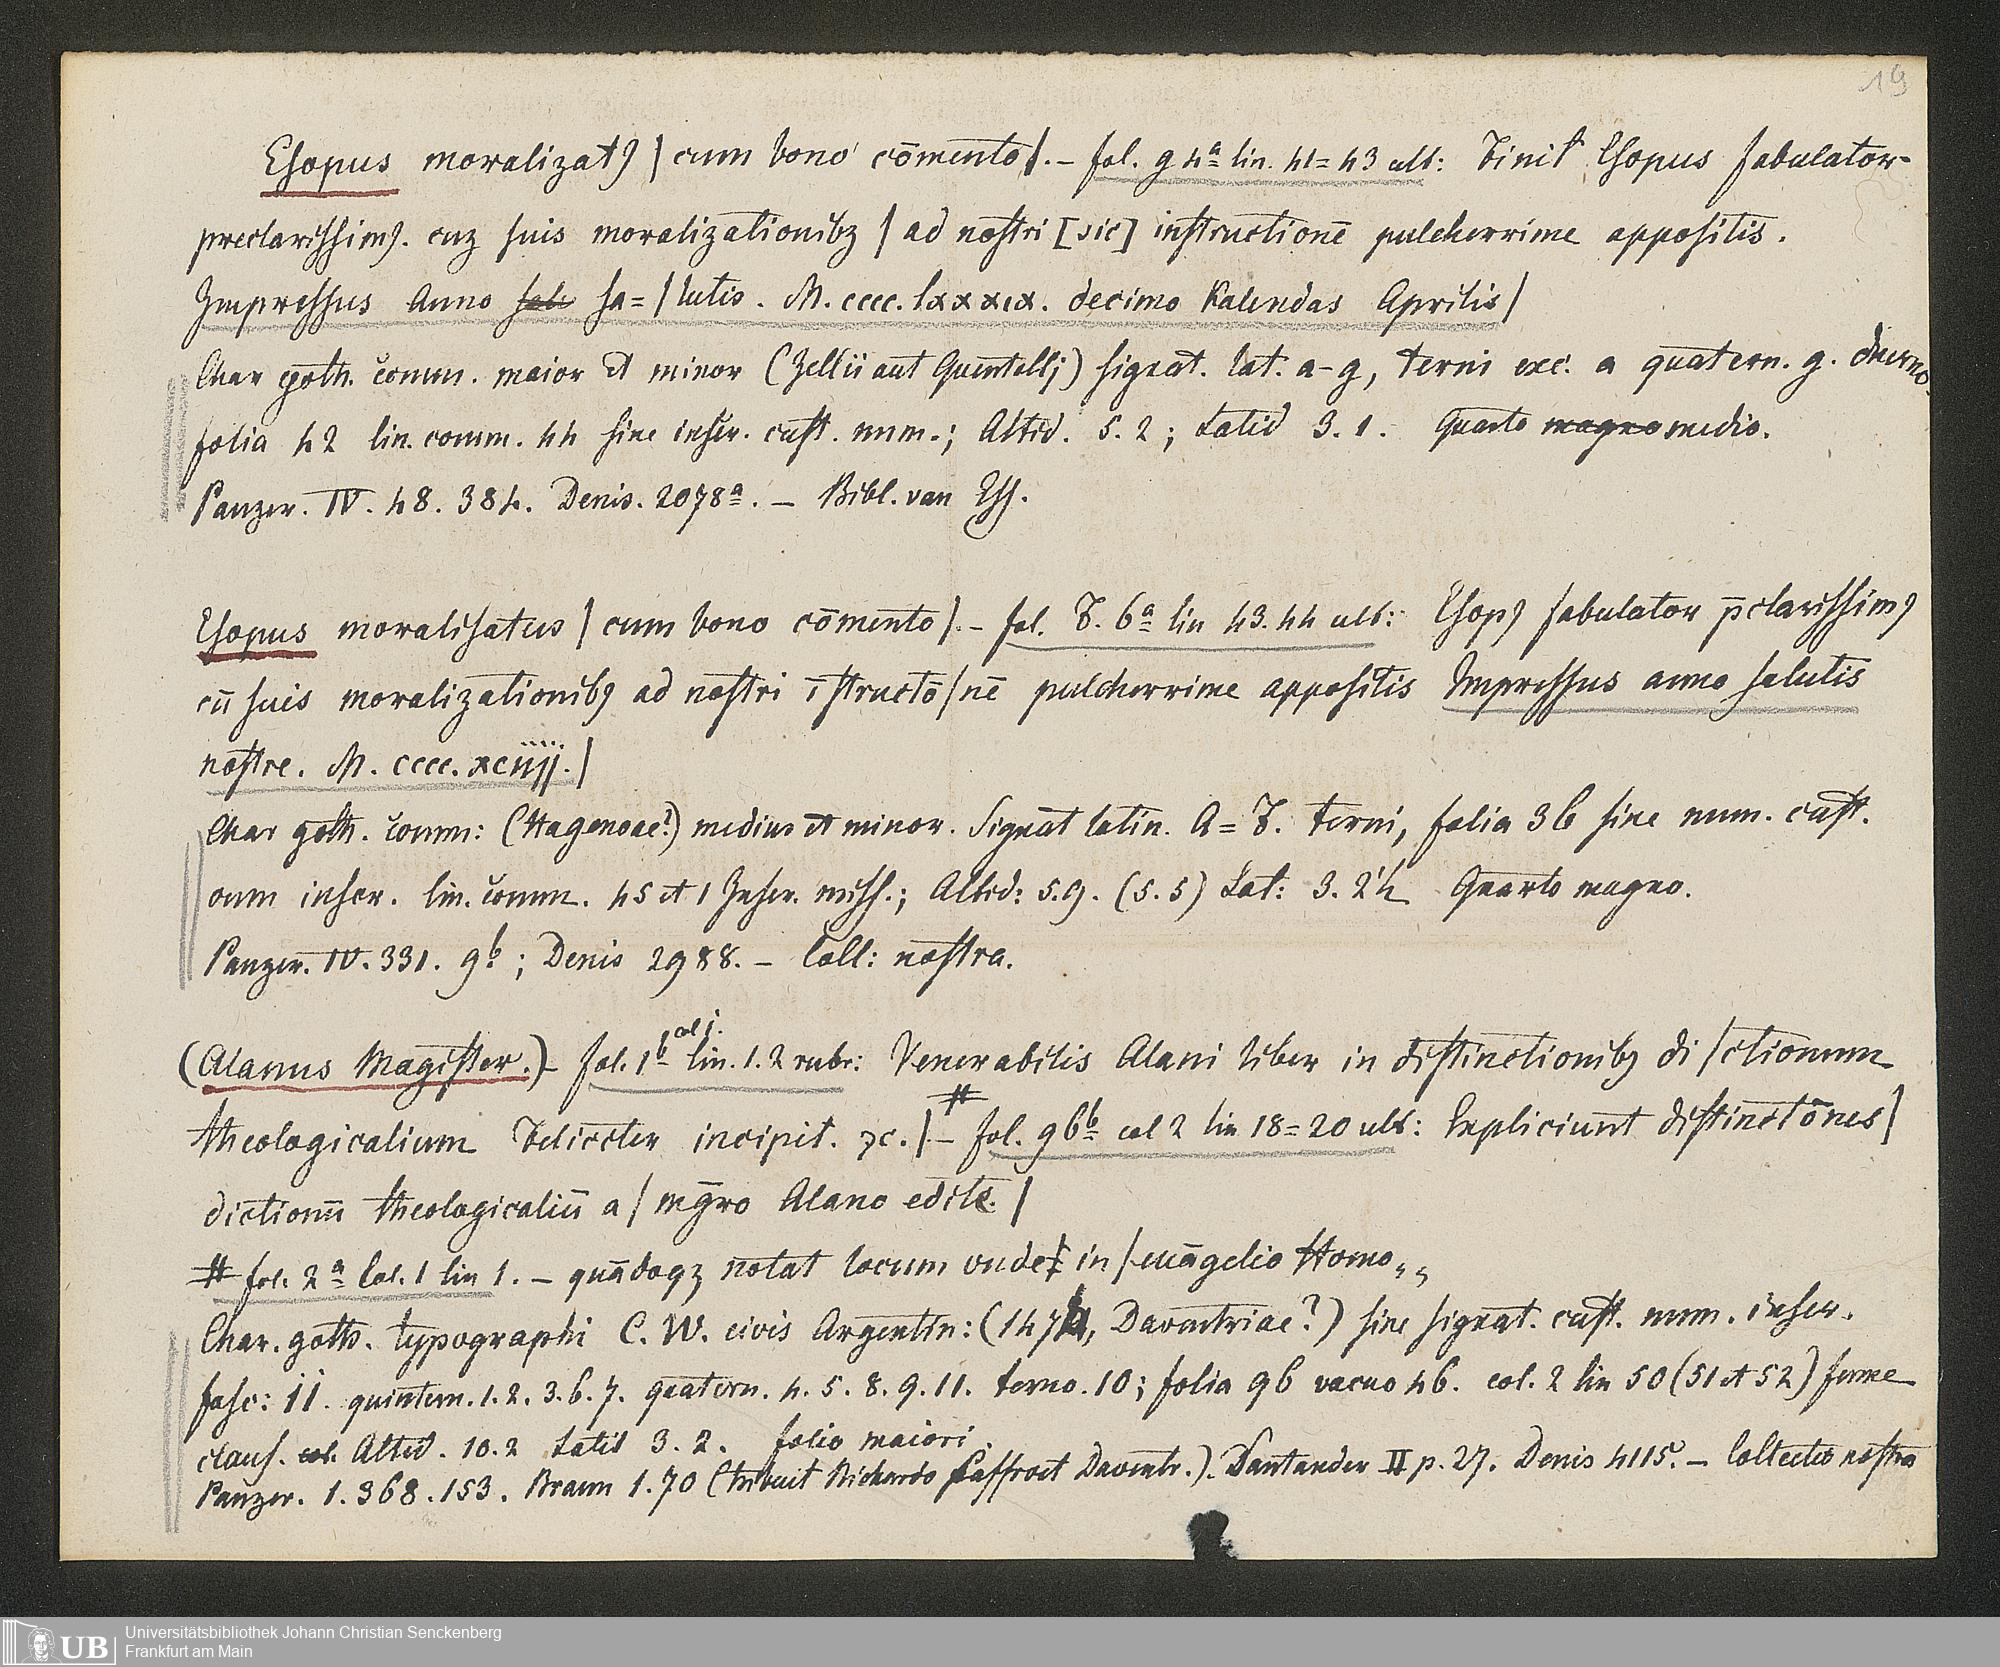 19
Esopus moralizatꝰ | cum bono cōmento |. – fol. g 4ª lin. 41=43 ult: Finit Esopus fabulator-
preclarissimꝰ. cuz suis moralizationibꝫ | ad nostri [sic] instructionē pulcherrime appositis.
Impressus Anno salu sa= | lutis. M. cccc. lxxxix. decimo Kalendas Aprilis |
Char goth. comm. maior et minor (Zellii aut Quentellj) signat. lat. a–g, terni exc. a quatern. g. duerno.
folia 42 lin. comm. 44 sine inscr. cust. num.; Altid. 5. 2; Latid 3. 1. Quarto magno medio.
Panzer. IV. 48. 384. Denis. 2078ª. – Bibl. van Ess.
Esopus moralisatus | cum bono cōmento |. – fol. F. 6ª lin 43. 44 ult: Esopꝰ fabulator p̄clarissimꝰ
cū suis moralizationibꝰ ad nostri īstructō | nē pulcherrime appositis Impressus anno salutis
nostre. M. cccc. xciiij. |
Char goth. comm: (Hagenoae?) medius et minor. Signat latin. A=F. terni, folia 36 sine num. cust.
cum inscr. lin. comm. 45 et 1 Inscr. miss.; Altid: 5.9. (5.5) Lat: 3. 2'4 Quarto magno.
Panzer. IV. 331. 9ᵇ; Denis 2988. – Coll: nostra.
(Alanus Magister.) – fol. 1ᵇ col j. lin. 1. 2 rubr: Venerabilis Alani liber in distinctionibꝫ di | ctionum
theologicalium Feliccter incipit. ⁊c. | – # fol. 96ᵇ col 2 lin 18=20 ult: Expliciunt distinctōnes |
dictionū theologicaliū a | mḡro Alano edite. |
# fol. 2ª Col. 1 lin 1. – quādoqꝫ notat locum vnde in | euāgelio Homo „
Char. goth. typographi C. W. civis Argentin: (1474, Daventriae?) sine signat. cust. num. inscr.
fasc: 11. quintern. 1. 2. 3. 6. 7. quatern. 4. 5. 8. 9. 11. terno. 10; folia 96 vacuo 46. col. 2 lin 50 (51 et 52) ferme
claus. col. Altid. 10. 2 Latid 3. 2. folio maiori
Panzer. 1. 368. 153. Braun 1. 70 (tribuit Richardo Paffroet Daventr.). Santander II p. 27. Denis 4115. – Collectio nostra
UB Universitätsbibliothek Johann Christian Senckenberg
Frankfurt am Main